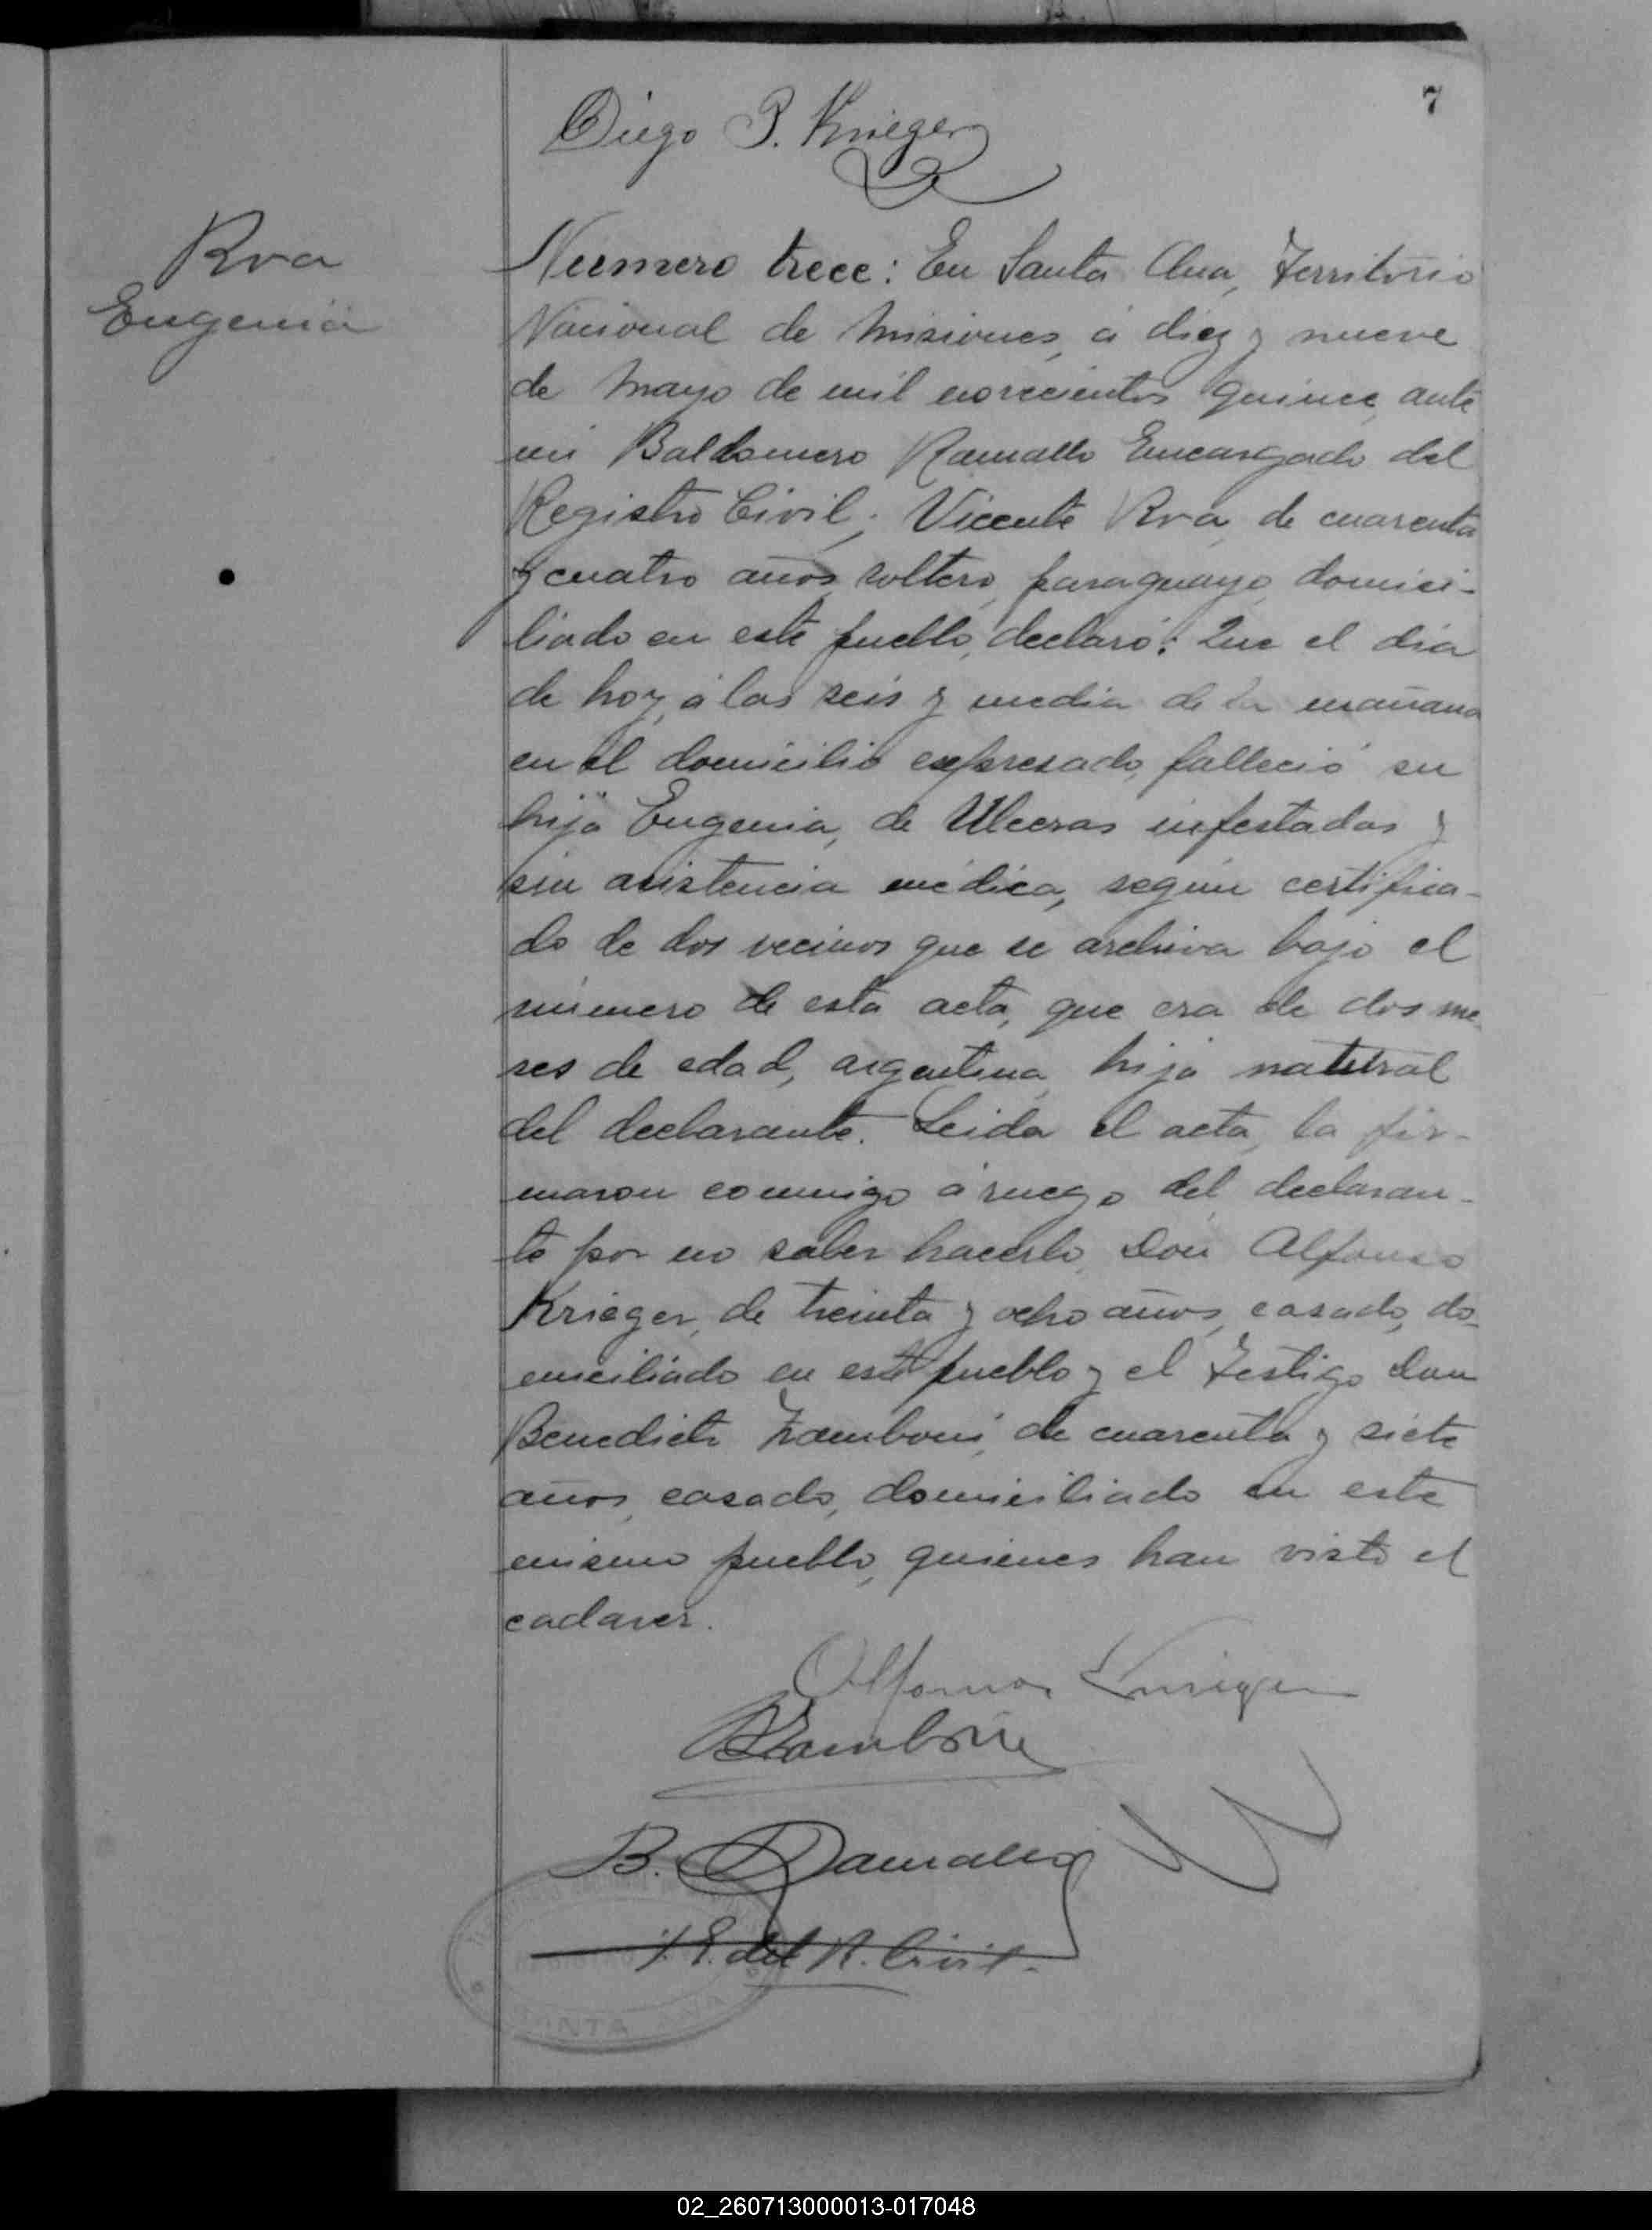 7
Diego P. Krieger
Rva
Eugenia
Numero trece: En Santa Ana, Territorio
Nacional de Misiones, á diez y nueve
de Mayo de mil novecientos quince, ante
mi Baldomero Ramallo Encargado del
Registro Civil; Vicente Rva, de cuarenta
y cuatro años, soltero, paraguayo, domici-
liado en este pueblo, declaró: Que el dia
de hoy, á las seis y media de la mañana
en el domicilio expresado, falleció su
hija Eugenia, de Ulceras infestadas y
sin asistencia médica, según certifica-
do de dos vecinos que se archiva bajo el
número de esta acta, que era de dos me-
ses de edad, argentina, hija natural
del declarante. Leida el acta, la fir-
maron conmigo á ruego del declaran-
te por no saber hacerlo, Don Alfonso
Krieger, de treinta y ocho años, casado, do-
miciliado en este pueblo y el testigo Don
Benedicto Zamboni, de cuarenta y siete
años, casado, domiciliado en este
mismo pueblo, quienes han visto el
cadaver.
Alfonso Krieger
BZamboni
B. Ramallo
E. del R. Civil.
SANTA ANA
02_260713000013-017048